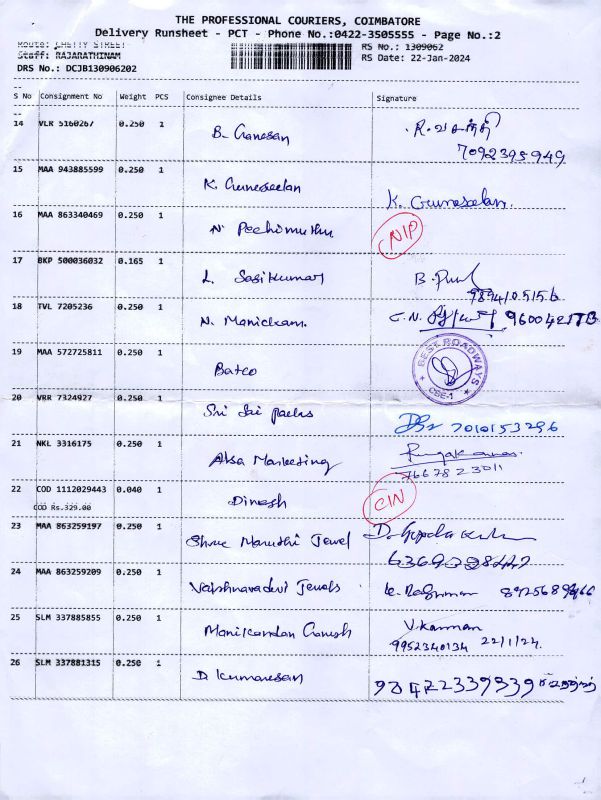 THE PROFESSIONAL COURIERS, COIMBATORE
Delivery Runsheet - PCT - Phone No.:0422-3505555 - Page No.:2
Route: CHETTY STREET RS No.: 1309062
Staff: RAJARATHINAM RS Date: 22-Jan-2024
DRS No.: DCJB130906202
S No Consignment No Weight PCS Consignee Details Signature
14 VLR 5160267 0.250 1 B. Ganesan R. வசந்தி
7092395949
15 MAA 943885599 0.250 1 K. Gunaseelan K. Gunaselan.
16 MAA 863340469 0.250 1 N. Pechimuthu NIP
17 BKP 500036032 0.165 1 L. Sasikumar B.
9894105156
18 TVL 7205236 0.250 1 N. Manickam. C.N.
19 MAA 572725811 0.250 1 Batco BEST ROADWAYS
CBE-1
20 VBR 7324927 0.250 1 Sri Sai packs 7010153296
21 NKL 3316175 0.250 1 Alsa Marketing
7667823011
22 COD 1112029443 0.040 1 Dinesh CIN
COD Rs.329.00
23 MAA 863259197 0.250 1 Shree Maruthi Jewel D. Gopala
24 MAA 863259209 0.250 1 Vaishnavadevi Jewels
25 SLM 337885855 0.250 1 Manikandan Ganesh V.Kannan
9952340134 22/1/24.
26 SLM 337881315 0.250 1 D. Kumaresan